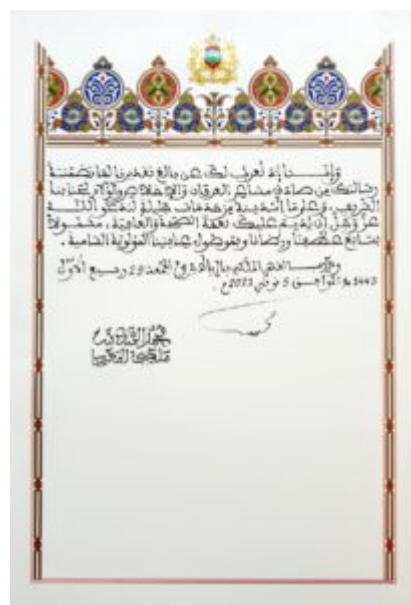 وإننا إذ نعرب لك عن بالغ تقديرنا لما تضمنته
رسالتك من صادق مشاعر العرفان والإخلاص والولاء لجنابنا
الشريف، وعلى ما أسديته من خدمات جليلة لندعو الله
عز وجل أن يديم عليك نعمة الصحة والعافية، مشمولا
بسابغ عطفنا ورضانا وبموصول عنايتنا المولوية السامية.
وحرر بالقصر الملكي بالرباط في الجمعة 29 ربيع الأول
1443 هـ الموافق 5 نونبر 2021 م.
محمد السادس
ملك المغرب